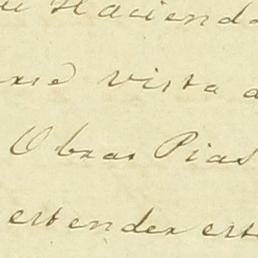 Hacienda
vista a
Obras Pias
estender est